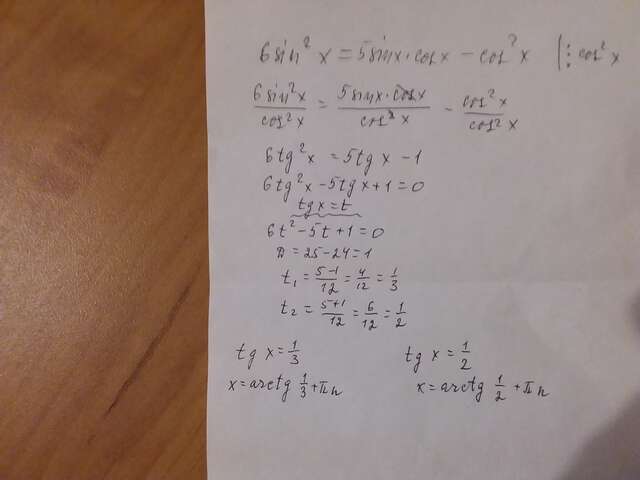 6sin² x = 5sinx·cosx − cos² x |: cos² x
6sin²x/cos²x = 5sinx·cosx/cos²x − cos²x/cos²x
6tg²x = 5tgx − 1
6tg²x − 5tgx + 1 = 0
tgx = t
6t² − 5t + 1 = 0
D = 25 − 24 = 1
t₁ = 5−1/12 = 4/12 = 1/3
t₂ = 5+1/12 = 6/12 = 1/2
tg x = 1/3 tg x = 1/2
x = arctg 1/3 + πn x = arctg 1/2 + πn